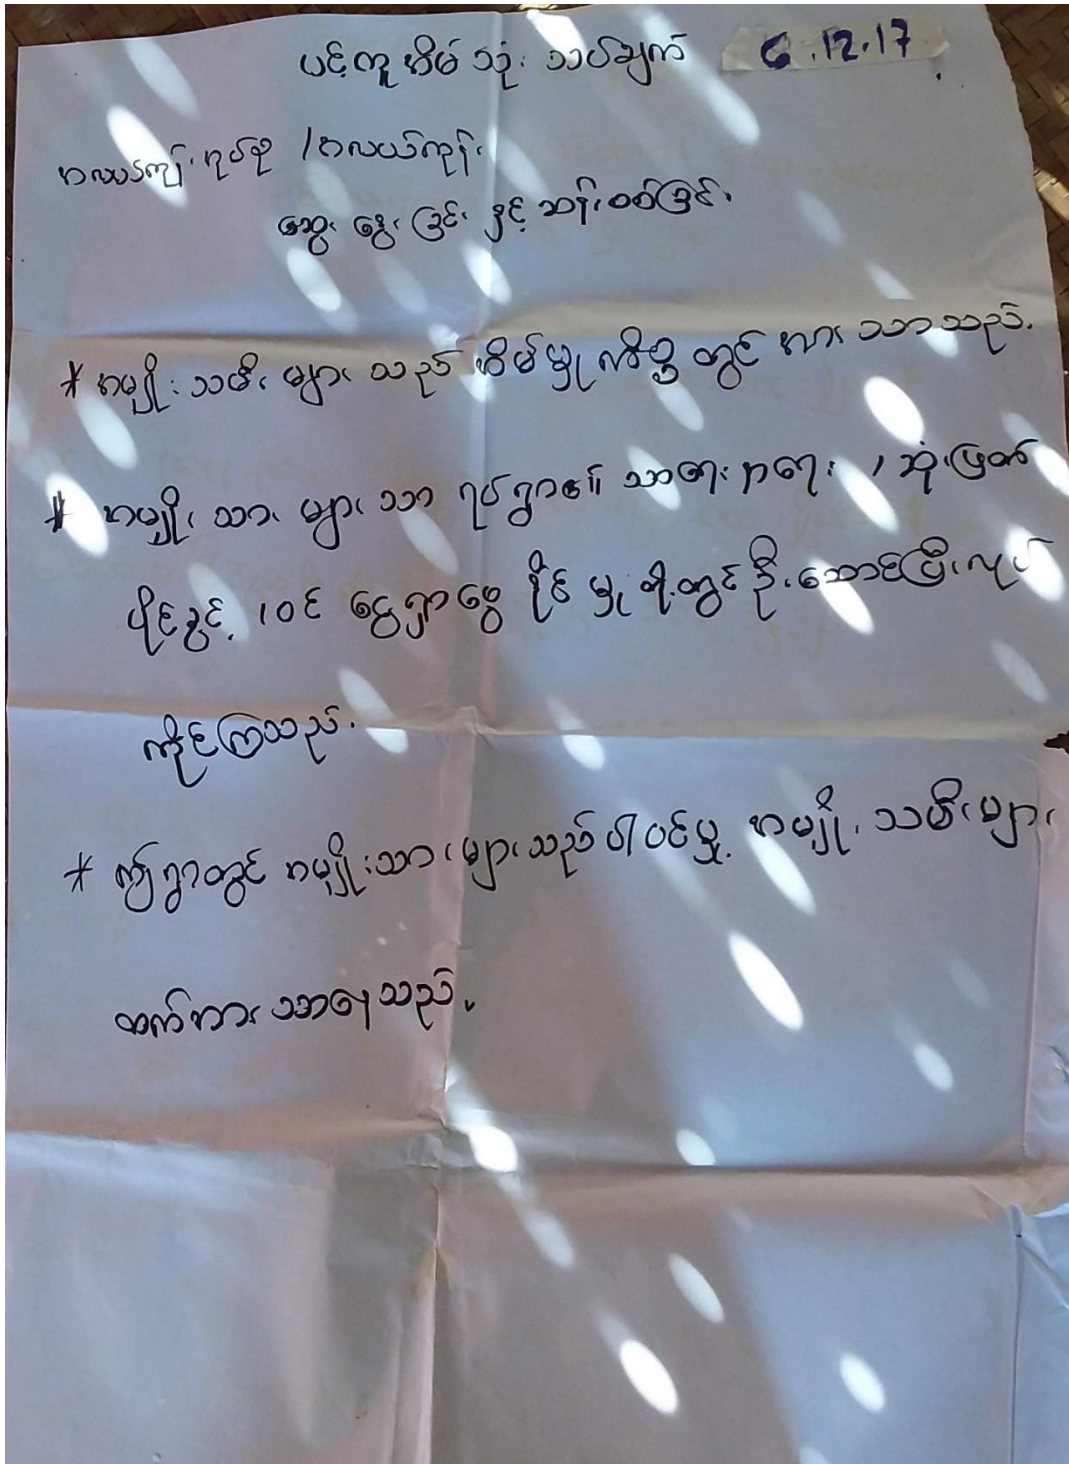 ပင့်ကူအိမ်သုံးသပ်ချက်
6.12.17
အလယ်ကျွန်းအုပ်စု /အလယ်ကုန်း
ဆွေးနွေးခြင်း နှင့် ဆန်းစစ်ခြင်း
* အမျိုးသမီးများသည် အိမ်မှုကိစ္စတွင် အားသာသည်.
* အမျိုးသားများသာ ရပ်ရွာ၏ သာရေးနာရေး / ဆုံးဖြတ်
ပိုင်ခွင့် /ဝင်ငွေရှာဖွေနိုင်မှုတို့တွင် ဦးဆောင်ပြီးလုပ်
ကိုင်ကြသည်.
* ဤရွာတွင် အမျိုးသားများသည် ပါဝင်မှု အမျိုးသမီးများ
ထက်အားသာနေသည်.